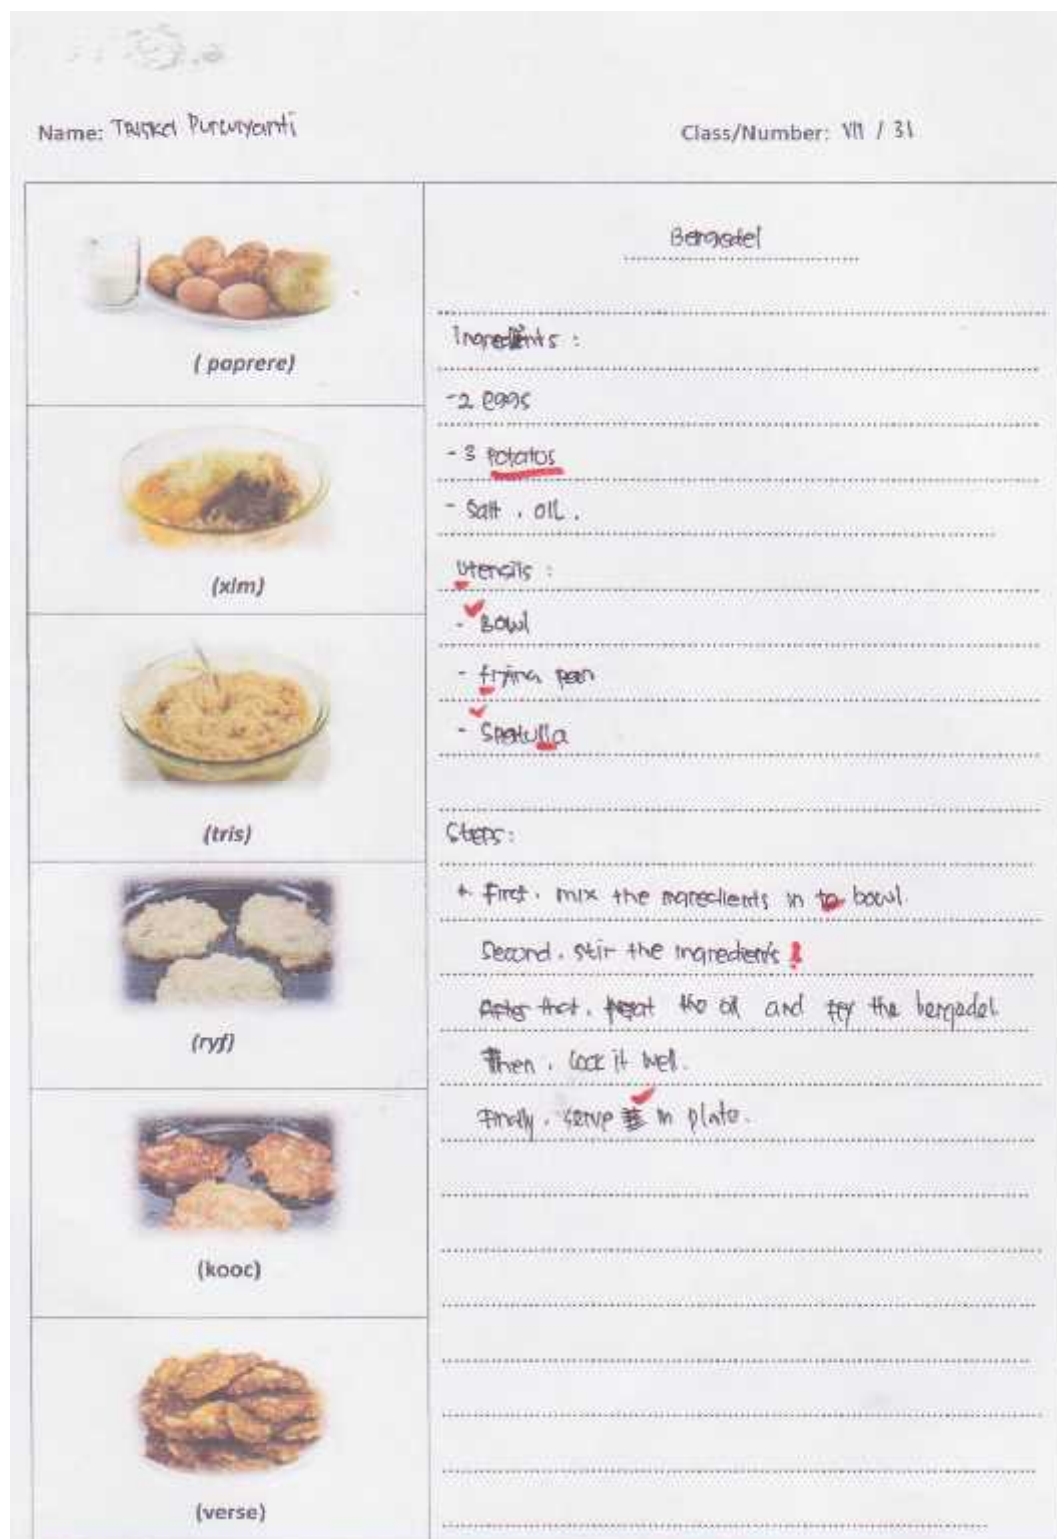 Name: Puruiyanti
Class/Number: VII / 31
( poprere)
(xlm)
(tris)
(ryf)
(kooc)
(verse)
Bergedel
Ingredients :
- 2 eggs
- 3 Potatos
- Salt , oil .
Utensils :
- Bowl
- frying pan
- Spatulla
Steps :
First , mix the ingredients in bowl.
Second , stir the ingredients
After that , heat the oil and fry the bergedel
Then , cock it well .
Finally , serve in plate .